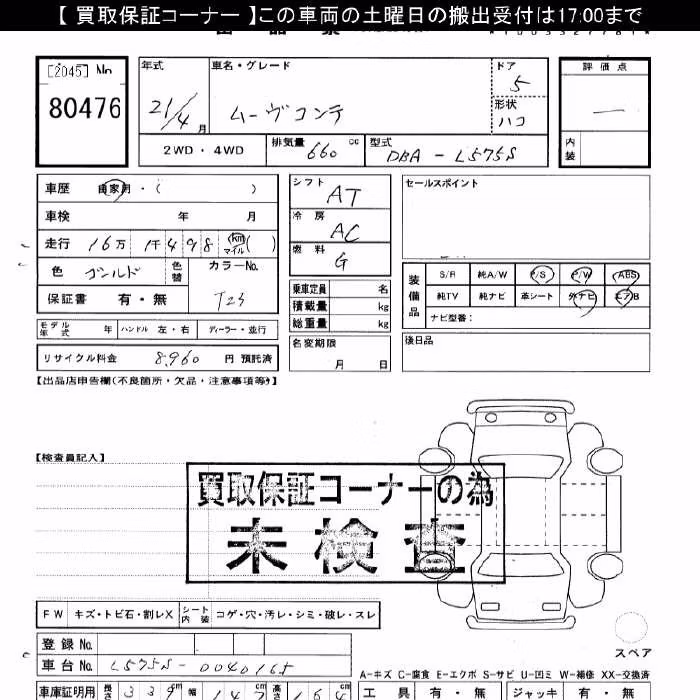 【 買取保証コーナー 】この車両の土曜日の搬出受付は17:00まで
*1003327781*
[2045] No
80476
年式 21/4月
車名・グレード ムーヴコンテ
ドア 5
形状 ハコ
評価点 —
内装
2WD・4WD
排気量 660 cc
型式 DBA-L575S
車歴 自家用・( )
車検 年 月
走行 16万 1千498 km マイル ( )
色 ゴールド 色替
カラーNo. T23
保証書 有・無
モデル年式 年 ハンドル 左・右 ディーラー・並行
リサイクル料金 8,960 円 預託済
シフト AT
冷房 AC
燃料 G
乗車定員 名
積載量 kg
総重量 kg
名変期限 月 日
セールスポイント
装備品
S/R 純A/W P/S P/W ABS
純TV 純ナビ 革シート 外ナビ エアB
ナビ型番:
後日品
【出品店申告欄(不良箇所・欠品・注意事項等)】
【検査員記入】
買取保証コーナーの為
未検査
FW キズ・トビ石・割レX シート内装 コゲ・穴・汚レ・シミ・破レ・スレ
スペア
登録No.
車台No. L575S-0040165
A-キズ C-腐食 E-エクボ S-サビ U-凹ミ W-補修 XX-交換済
車庫証明用 長さ 339 幅 147 高さ 164
工具 有・無 ジャッキ 有・無